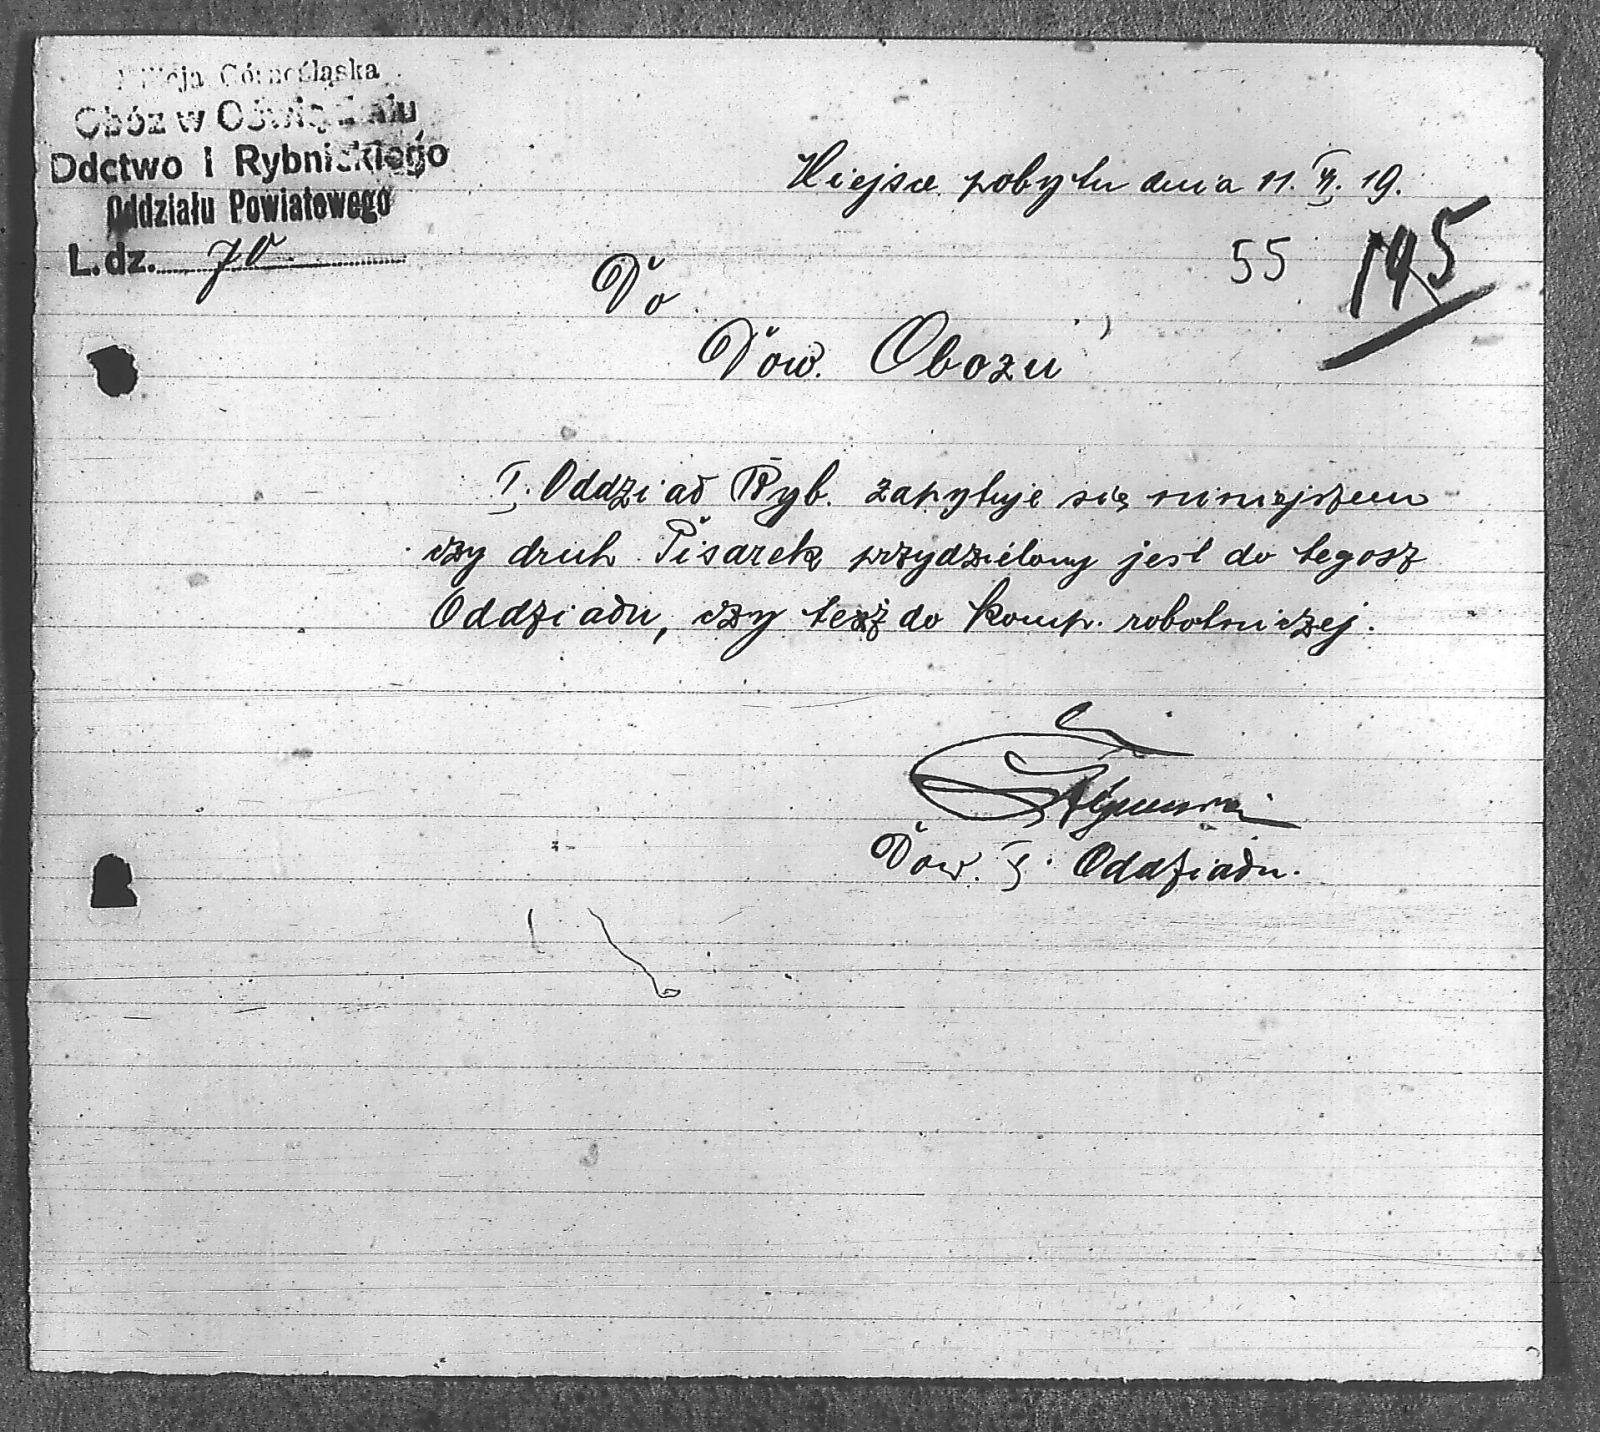 Milicja Górnośląska
Obóz w Oświęcimiu
Ddctwo I Rybnickiego
Oddziału Powiatowego
L.dz. 70
Miejsce pobytu dnia 11. X. 19.
55 195
Do
Dow. Obozu
I. Oddział Ryb. zapytuje się niniejszem
czy druh Pisarek przydzielony jest do tegosz
Oddziału, czy też do Komp. robotniczej.
Dow. I. Oddziału.